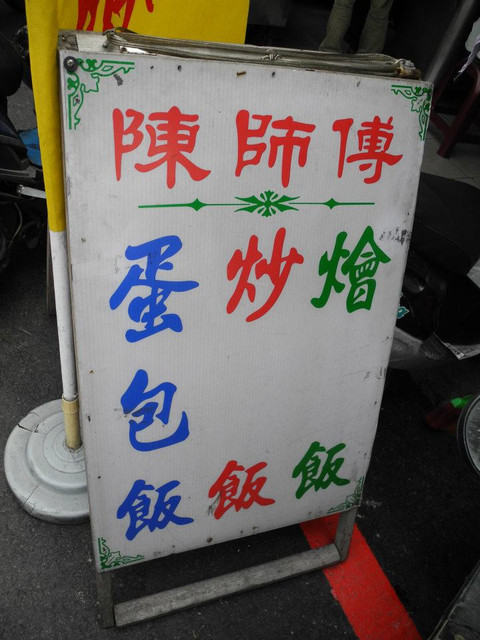 陳師傅
蛋包飯
炒飯
燴飯